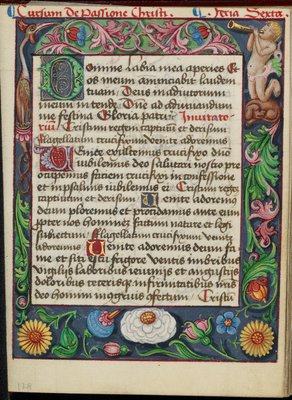 Cursum de Passione Christi. feria Sexta.
Domine labia mea aperies Et
os meum annunciabit laudem
tuam. Deus in adiutorium
meum intende Dne ad adiuuandum
me festina Gloria patri. Inuitato-
rium Cristum regem captum et derisum
flagellatum crucifixum venite adoremus
Uenite exultemus crucifixo duci
iubilemus deo salutari nostro pre
occupemus faciem crucifixi in confessione
et in psalmis iubilemus ei Cristum regem
captum et derisum Uenite adoremus
deum ploremus et procidamus ante eum
hominem et legi
flagellatum crucifixum venite
adoremus Uenite adoremus deum
ne et siti estu frigore ventis imbribus
vigiliis laboribus ieiuniis et angustiis
doloribus ceterisque infirmitatibus
deo hominum Cristum
118